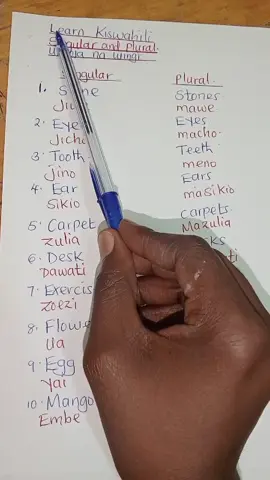 Learn Kiswahili
Singular and Plural.
Umoja na wingi
Singular Plural
1. Stone Stones
Jiwe mawe
2. Eye Eyes
Jicho macho
3. Tooth Teeth
Jino meno
4. Ear Ears
Sikio masikio
5. Carpet Carpets
Zulia Mazulia
6. Desk
Dawati
7. Exercise
Zoezi
8. Flower
Ua
9. Egg
Yai
10. Mango
Embe